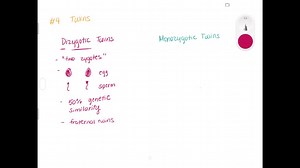 #4 Twins
Dizygotic Twins
- "two zygotes"
egg
sperm
- 50% genetic
similarity
- fraternal twins
Monozygotic Twins